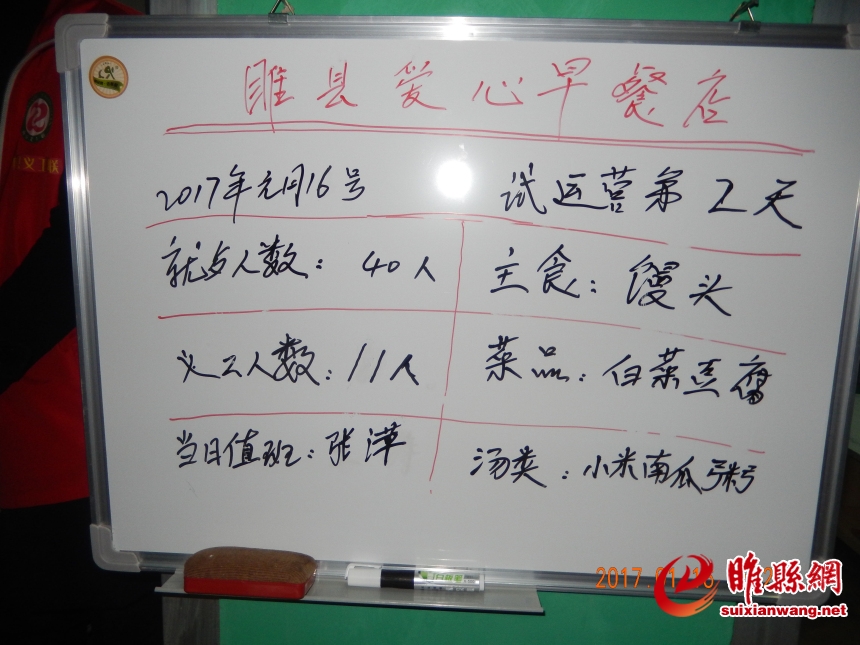 睢县爱心早餐店
2017年元月16号 试运营第2天
就歺人数：40人 主食：馒头
义工人数：11人 菜品：白菜豆腐
当日值班：张萍 汤类：小米南瓜粥
义工联
2017 01
睢縣網
suixianwang.net